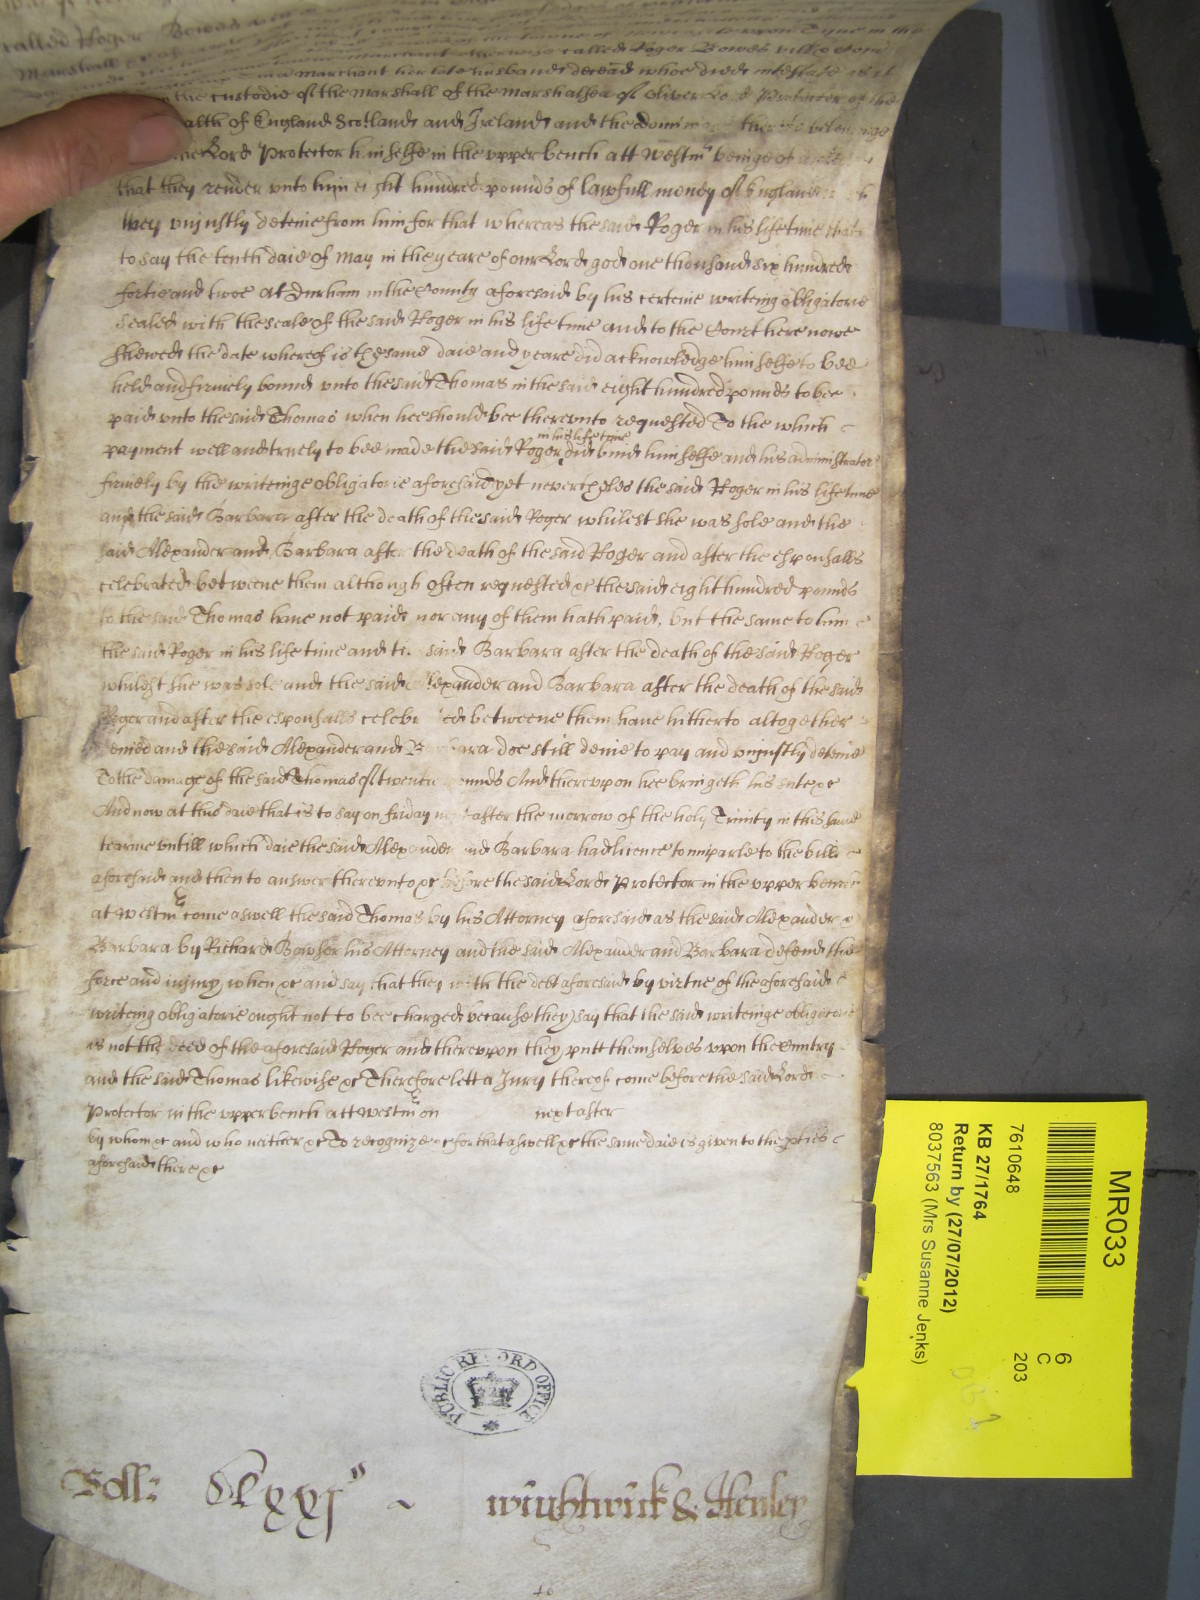 called Roger Bowes
Marshall
marchant otherwise called Roger Bowes
marchant her late husband decead whoe died intestate
the custodie of the Marshall of the Marshalsea of Oliver Lord Protector of the
alth of England Scotland and Ireland and the
the Lord Protector himselfe in the upper bench att Westmr
that they render unto him eight hundred pounds of lawfull money of England
they uniustly deteine from him for that whereas the said Roger in his life time that
to say the tenth daie of May in the yeare of our Lord god one thousand six hundred
fortie and twoe at Durham in the County aforesaid by his certeine writeing obligatorie
sealed with the seale of the said Roger in his life time and to the Court here nowe
shewed the date whereof is the same daie and yeare did acknowledge himselfe to bee
held and firmely bound unto the said Thomas in the said eight hundred pounds to bee
paid unto the said Thomas when hee should bee thereunto requested To the which
payment well and truely to bee made the said Roger in his life time did bind himselfe and his administrators
firmely by the writeinge obligatorie aforesaid yet neverthelesse the said Roger in his life time
and the said Barbara after the death of the said Roger whilest she was sole and the
said Alexander and Barbara after the death of the said Roger and after the espousalls
celebrated betweene them although often requested &c the said eight hundred pounds
to the said Thomas have not paid nor any of them hath paid, but the same to him
the said Roger in his life time and the said Barbara after the death of the said Roger
whilest she was sole and the said Alexander and Barbara after the death of the said
Roger and after the espousalls celebrated betweene them have hitherto altogether
denied and the said Alexander and Barbara doe still denie to pay and uniustly deteine
To the damage of the said Thomas of twentie pounds And thereupon hee bringeth his sute &c
And now at this daie that is to say on friday next after the morrow of the holy Trinity in this same
tearme untill which daie the said Alexander and Barbara had licence to imparle to the bill
aforesaid and then to answer thereunto &c before the said Lord Protector in the upper bench
at Westmr come aswell the said Thomas by his Attorney aforesaid as the said Alexander &
Barbara by Richard Bowser his Attorney and the said Alexander and Barbara defend the
force and iniury when &c and say that they with the debt aforesaid by virtue of the aforesaid
writeing obligatorie ought not to bee charged because they say that the said writeinge obligatorie
is not the deed of the aforesaid Roger and thereupon they putt themselves upon the Cuntry
and the said Thomas likewise &c Therefore lett a Jury thereof come before the said Lord
Protector in the upper bench att Westmr on next after
by whom &c and who neither &c To recognize &c for that aswell &c the same daie is given to the pties
aforesaid there &c
PUBLIC RECORD OFFICE
Roll:
Wightwick & Henley
MR033
7610648
KB 27/1764
Return by (27/07/2012)
8037563 (Mrs Susanne Jenks)
6
C
203